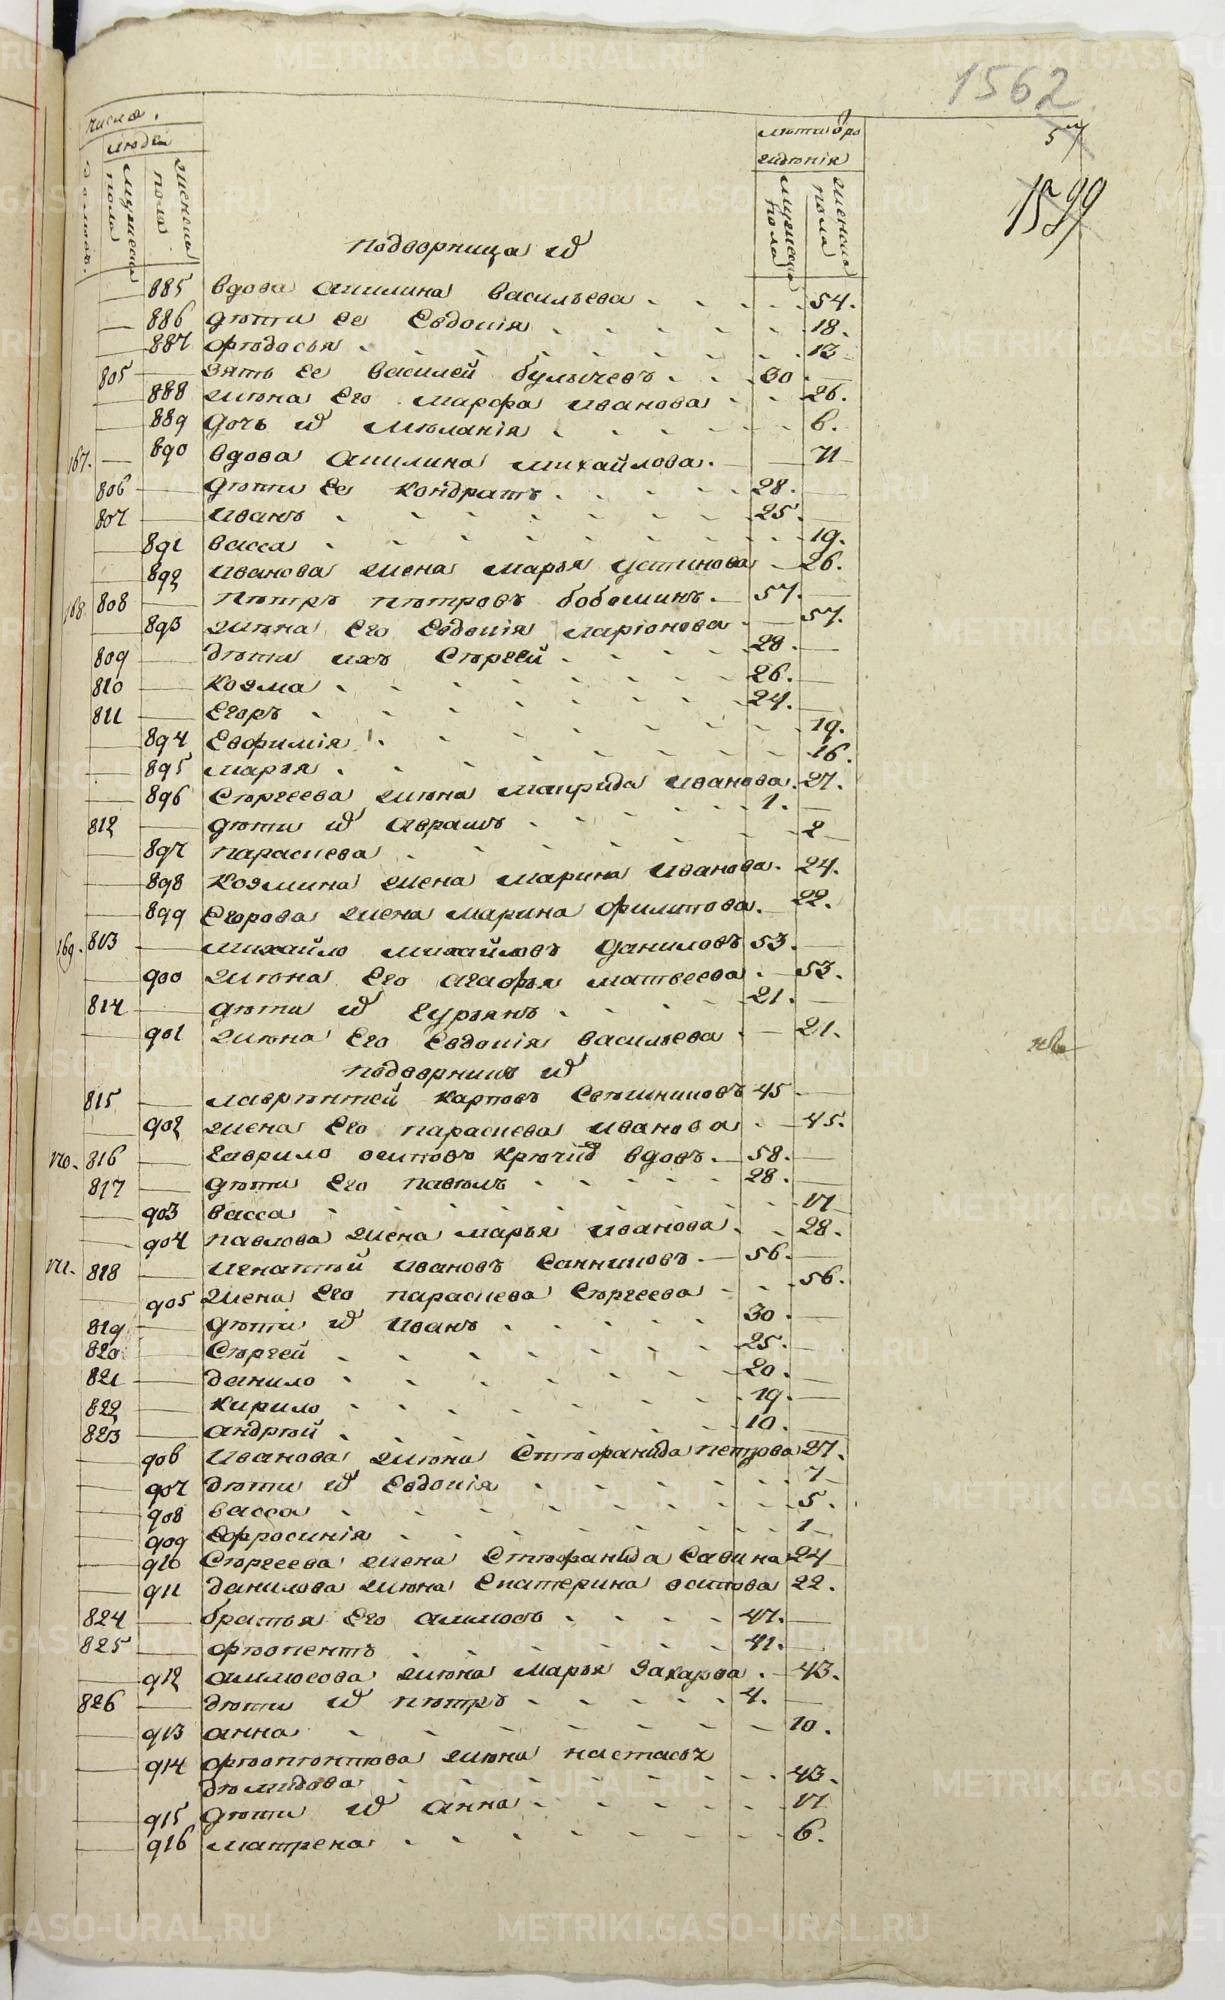 1562
57
1599
числа.
людей
домовъ.
мужеска пола
женска пола
лѣта от ро
ждѣнія
мужеска пола
женска пола
подворница их
885 вдова акилина васильева 54.
886 дѣти ее Евдокія 18.
887 фѣдосья 13
805 зять ее василей булычевъ 30
888 жѣна Его марфа иванова 26.
889 дочь их мѣланія 6.
167. 890 вдова акилина михайлова. 71
806 дѣти Ее кондратъ 28.
807 иванъ 25
891 васса 19.
892 иванова жена марья устинова 26.
168. 808 пѣтръ пѣтровъ бобошинъ. 57.
893 жѣна Его Евдокія ларіонова 57.
809 дѣти ихъ Сѣргей 28.
810 козма 26.
811 Егоръ 24.
894 Евфимія 19.
895 марья 16.
896 Сѣргеева жѣна мавриda иванова. 27.
812 дѣти их аврамъ 1.
897 параскева 2
898 козмина жена марина иванова. 24.
899 Егорова жена марина филипова. 22.
169. 813 михайло михайловъ даниловъ 53.
900 жѣна Его агафья матвеева 53.
814 дѣти их Гурьянъ 21.
901 жѣна Его Евдокія васильева 21.
подворникъ их
815 лаврѣнтей карповъ Свѣшниковъ 45
902 жена Его параскева иванова 45.
170. 816 гаврило осиповъ крючков вдовъ. 58.
817 дѣти Его павѣлъ 28.
903 васса 17
904 павлова жена марья иванова 28.
171. 818 игнатѣй ивановъ Санниковъ. 56.
905 жена Его параскева Сѣргеева 56.
819 дѣти их иванъ 30.
820 Сѣргей 25.
821 данило 20.
822 кирило 19.
823 андрѣй 10.
906 иванова жѣна Стѣфанида петрова 27.
907 дѣти их Евдокія 7
908 васса 5.
909 Ефросинія 1
910 Сѣргеева жена Стѣфанида Савина 24
911 данилова жѣна Екатерина осипова 22.
824 братья Его алимпѣй 47.
825 фѣопентъ 41.
912 жѣна марья Захарова 43.
826 дѣти их пѣтръ 4.
913 анна 10.
914 жѣна настасья
дѣмидова 43.
915 дѣти их анна 17
916 матрена 6.